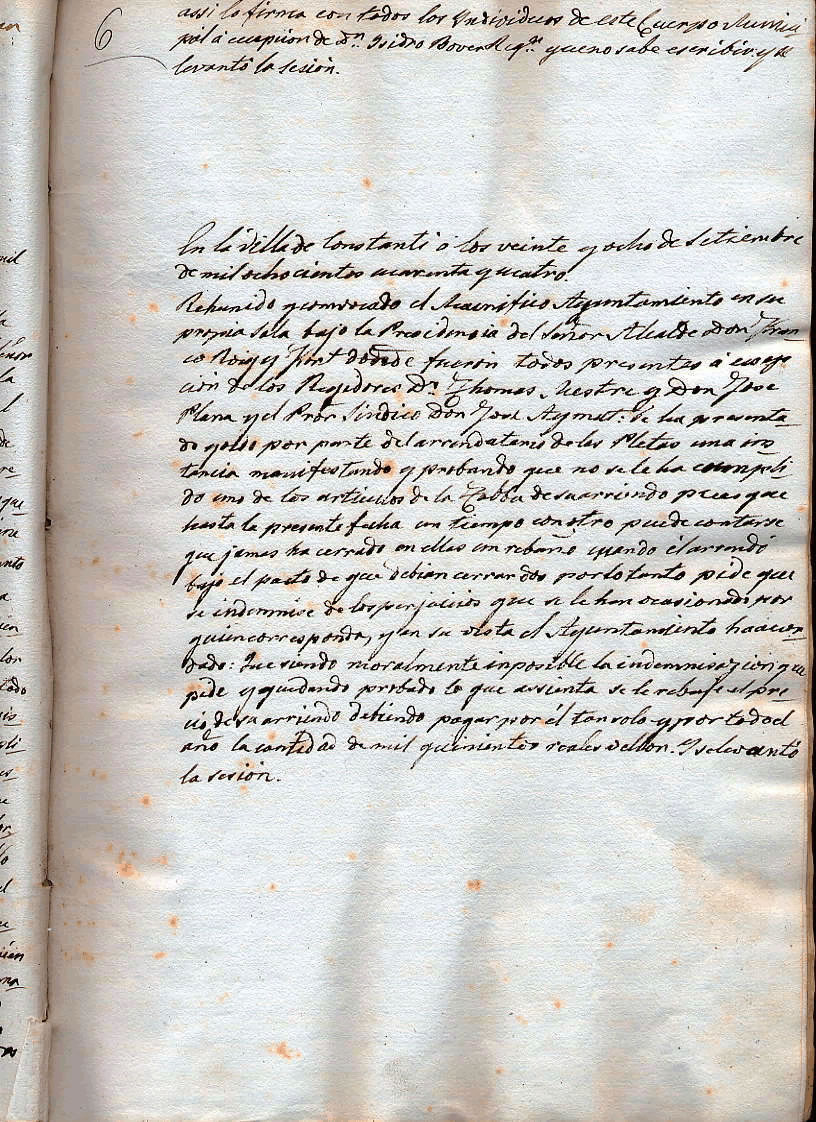 6
assi lo firma con todos los Yndividuos de este Cuerpo Munici
pal á ecepcion de Dn. Isidro Bover Regr. que no sabe escribir. y se
levantó la sesión.
En la Villa de Constanti á los veinte y ocho de Setziembre
de mil ochocientos cuarenta y cuatro.
Rehunido y convocado el Macnifico Ayuntamiento en su
propia Sala bajo la Presidencia del Señor Alcalde Don Fran
co Roig y Font donde fueron todos presentes á ecep
ción de los Regidores Dn. Thomas Mestre y Don Jose
Plana y el Pror. Sindico Don Jose Aymat: Se ha presenta-
do y oido por parte del arrendatario de las Pletas una ins-
tancia manifestando y probando que no se le ha cumpli-
do uno de los articulos de la Tabba de su arriendo pues que
hasta la presente fecha un tiempo con otro puede contarse
que jamas ha cerrado en ellas un rebaño cuando él arrendó
bajo el pacto de que debian cerrar dos por lo tanto pide que
se indemnise de los perjuicios que se le han ocasionado por
quien corresponda, y en su vista el Ayuntamiento ha acor-
dado: Que siendo moralmente imposible la indemnisazion que
pide y quedando probado lo que assienta se le rebaje el pre-
cio de su arriendo debiendo pagar por él tan solo y por todo el
año la cantidad de mil quinientos reales vellon. Y se levantó
la sesión.